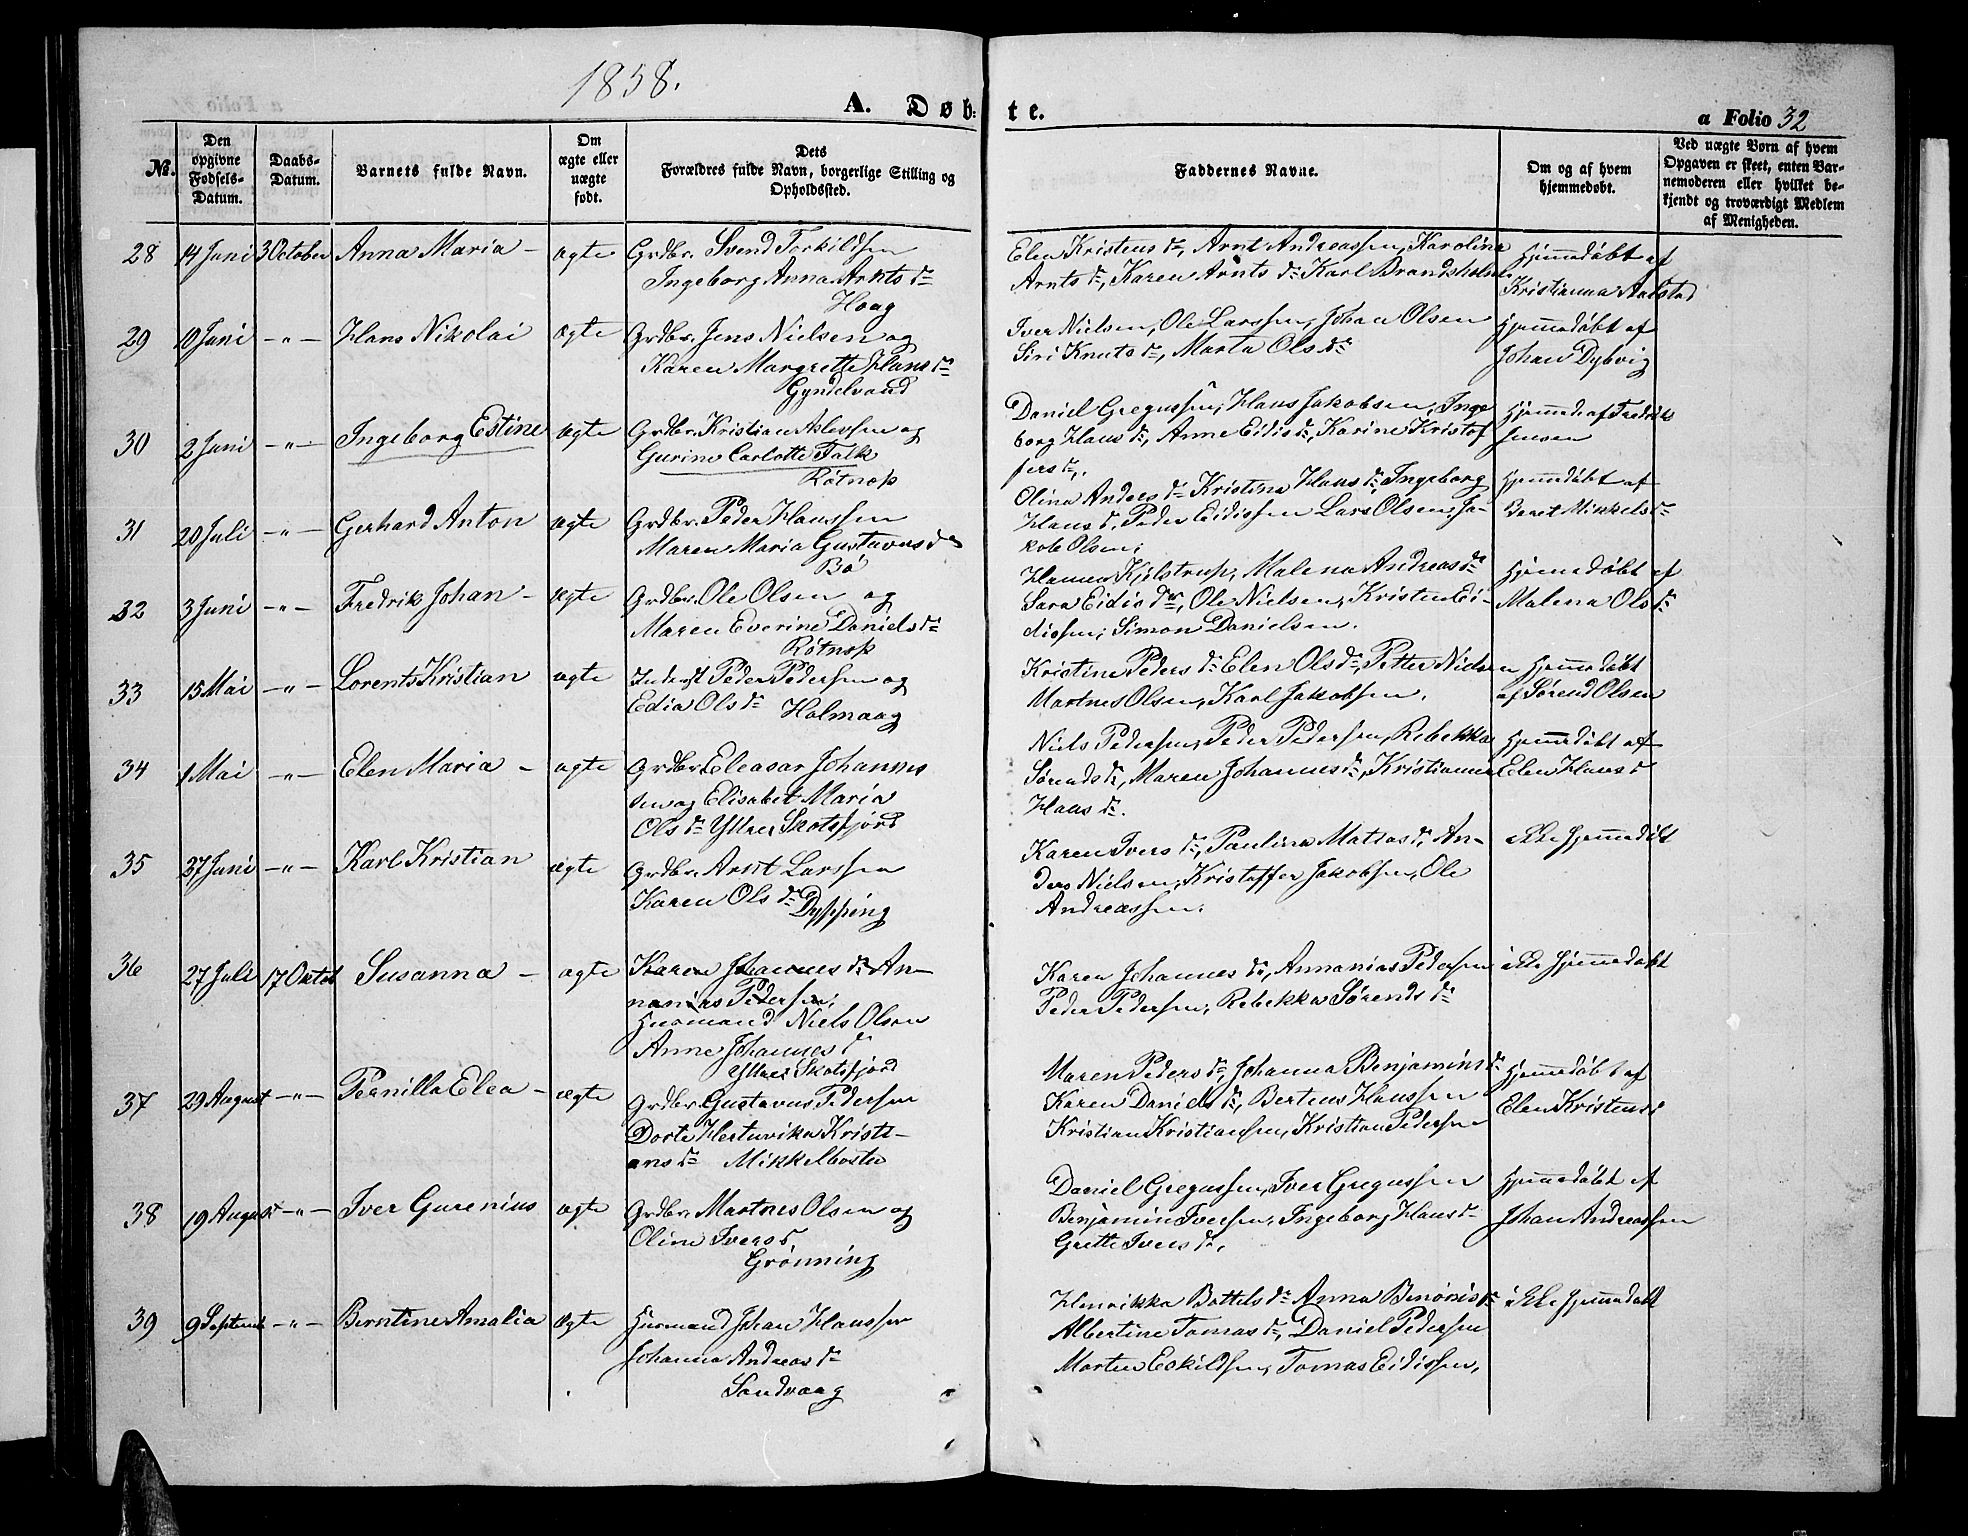 1858.
A. Døb-
te.
a Folio 32
№.
Den opgivne Fødsels-Datum.
Daabs-Datum.
Barnets fulde Navn.
Om ægte eller uægte født.
Dets Forældres fulde Navn, borgerlige Stilling og Opholdssted.
Faddernes Navne.
Om og af hvem hjemmedøbt.
Ved uægte Børn af hvem Opgaven er skeet, enten Barnemoderen eller hvilket bekjendt og troværdigt Medlem af Menigheden.
28 14 Juni 3 October Anna Maria - ægte Grdbr. Svend Torkildsen
Ingeborg Anna Arnts dr
Haag
Elen Kristens dr, Arnt Andreassen, Karolina
Arnts dr, Karen Arnts dr Karl Brandsholm
Hjemmedøbt af
Kristianna Aalstad
29 10 Juni -"- Hans Nikolai ægte Grdbr. Jens Nielsen og
Karen Margrethe Hans dr
Gyndelvand
Iver Nielsen, Ole Larssen, Johan Olsen
Siri Knuts dr, Marta Ols dr
Hjemmedøbt af
Johan Dybvig
30 2 Juni -"- Ingeborg Estine ægte Grdbr. Kristian Alexsen og
Gurine Carlotte Falk
Røtnøs
Daniel Gregussen, Hans Jakobsen, Inge
borg Hans dr, Anne Eidis dr, Karine Kristof
fers dr,
Hjemmed af Fredrik
Jensen
31 20 Juli -"- Gerhard Anton ægte Grdbr. Peder Hanssen
Maren Maria Gustavus dr
Bø
Olina Anders dr Kristina Hans dr, Ingeborg
Hans d. Peder Eidissen Lars Olsen, Ja-
kob Olsen;
Hjemmedøbt af
Beret Mikkels dr
32 3 Juni -"- Fredrik Johan - ægte Grdbr. Ole Olsen og
Maren Everine Daniels dr
Røtnøs
Hanna Kjelstrup, Malena Andreas dr
Sara Eidis dr, Ole Nielsen, Kristen Ei-
dissen; Simon Danielsen.
Hjemmedøbt af
Malena Ols dr
33 15 Mai -"- Lorents Kristian ægte Inderst Peder Pedersen og
Edia Ols dr Holmaag
Kristine Peders dr Elen Ols dr, Petter Nielsen
Martnes Olsen, Karl Jakobsen.
Hjemmedøbt
af Sørend Olsen
34 1 Mai -"- Elen Maria - ægte Grdbr. Eleasar Johannes
sen og Elisabet Maria
Ols dr Yttre Skotsfjord
Niels Pedersen, Peder Pedersen, Rebekka
Sørends dr, Maren Johannes dr, Kristianna
Hans dr.
Hjemmedøbt af
Elen Hans d
35 27 Juni -"- Karl Kristian ægte Grdbr. Arnt Larssen
Karen Ols dr Dypping
Karen Ivers dr, Paulina Mattas dr, An-
ders Nielsen, Kristoffer Jakobsen, Ole
Andreassen.
ikke hjemmedøbt
36 27 Juli 17 Oktob Susanna - ægte Karen Johannes dr An-
nanias Pedersen;
Husmand Niels Olsen
Anne Johannes dr
Yttre Skotsfjord
Karen Johannes dr, Annanias Pedersen
Peder Pedersen, Rebekka Sørends dr
ikke hjemmedøbt
37 29 August -"- Pernilla Elea - ægte Grdbr. Gustavus Pedersen
Dorte Hertuvika Kristi-
ans dr Mikkelbosta
Maren Peders dr, Johanna Benjamins dr
Karen Daniels dr, Berteus Hanssen
Kristian Kristiansen, Kristian Pedersen
Hjemmedøbt af
Elen Kristens d
38 19 August -"- Iver Gurenius ægte Grdbr. Martnes Olsen og
Oline Ivers d
Grønning
Daniel Gregussen, Iver Gregussen
Benjamin Iversen, Ingeborg Hans dr
Grette Ivers dr,
Hjemmedøbt af
Johan Andreassen
39 9 Septemb -"- Berntine Amalia ægte Husmand Johan Hanssen
Johanna Andreas dr
Sandvaag
Henrikka Bottels dr Anna Benonis dr
Albertine Tomas dr, Daniel Pedersen
Morten Eskildsen, Tomas Eidissen,
ikke hjemmedøbt